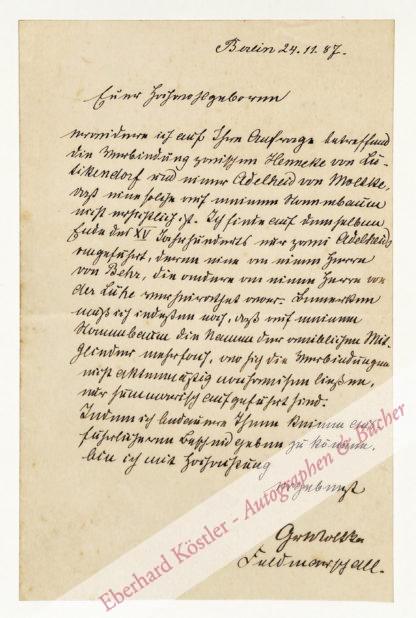 Berlin 24. 11. 87.
Euer Hochwohlgeboren
erwidere ich auf Ihre Anfrage betreffend
die Verbindung zwischen Henneke von Lü-
tikendorf und einer Adelheid von Moltke,
daß eine solche auf meinem Stammbaum
nicht ersichtlich ist. Ich finde auf demselben
Ende des XV Jahrhunderts nur zwei Adelheids
angeführt, deren eine an einen Herrn
von Behr, die andere an einen Herrn von
der Lühe verheirathet war. Bemerken
muß ich indeßen noch, daß auf meinem
Stammbaum die Namen der weiblichen Mit-
glieder mehrfach, wo sich die Verbindungen
nicht aktenmäßig nachweisen ließen,
nur summarisch aufgeführt sind.
Indem ich bedauere Ihnen keinen aus-
führlicheren Bescheid geben zu können,
bin ich mit Hochachtung
ergebenst
Gr Moltke
Feldmarschall.
Eberhard Köstler - Autographen & Bücher